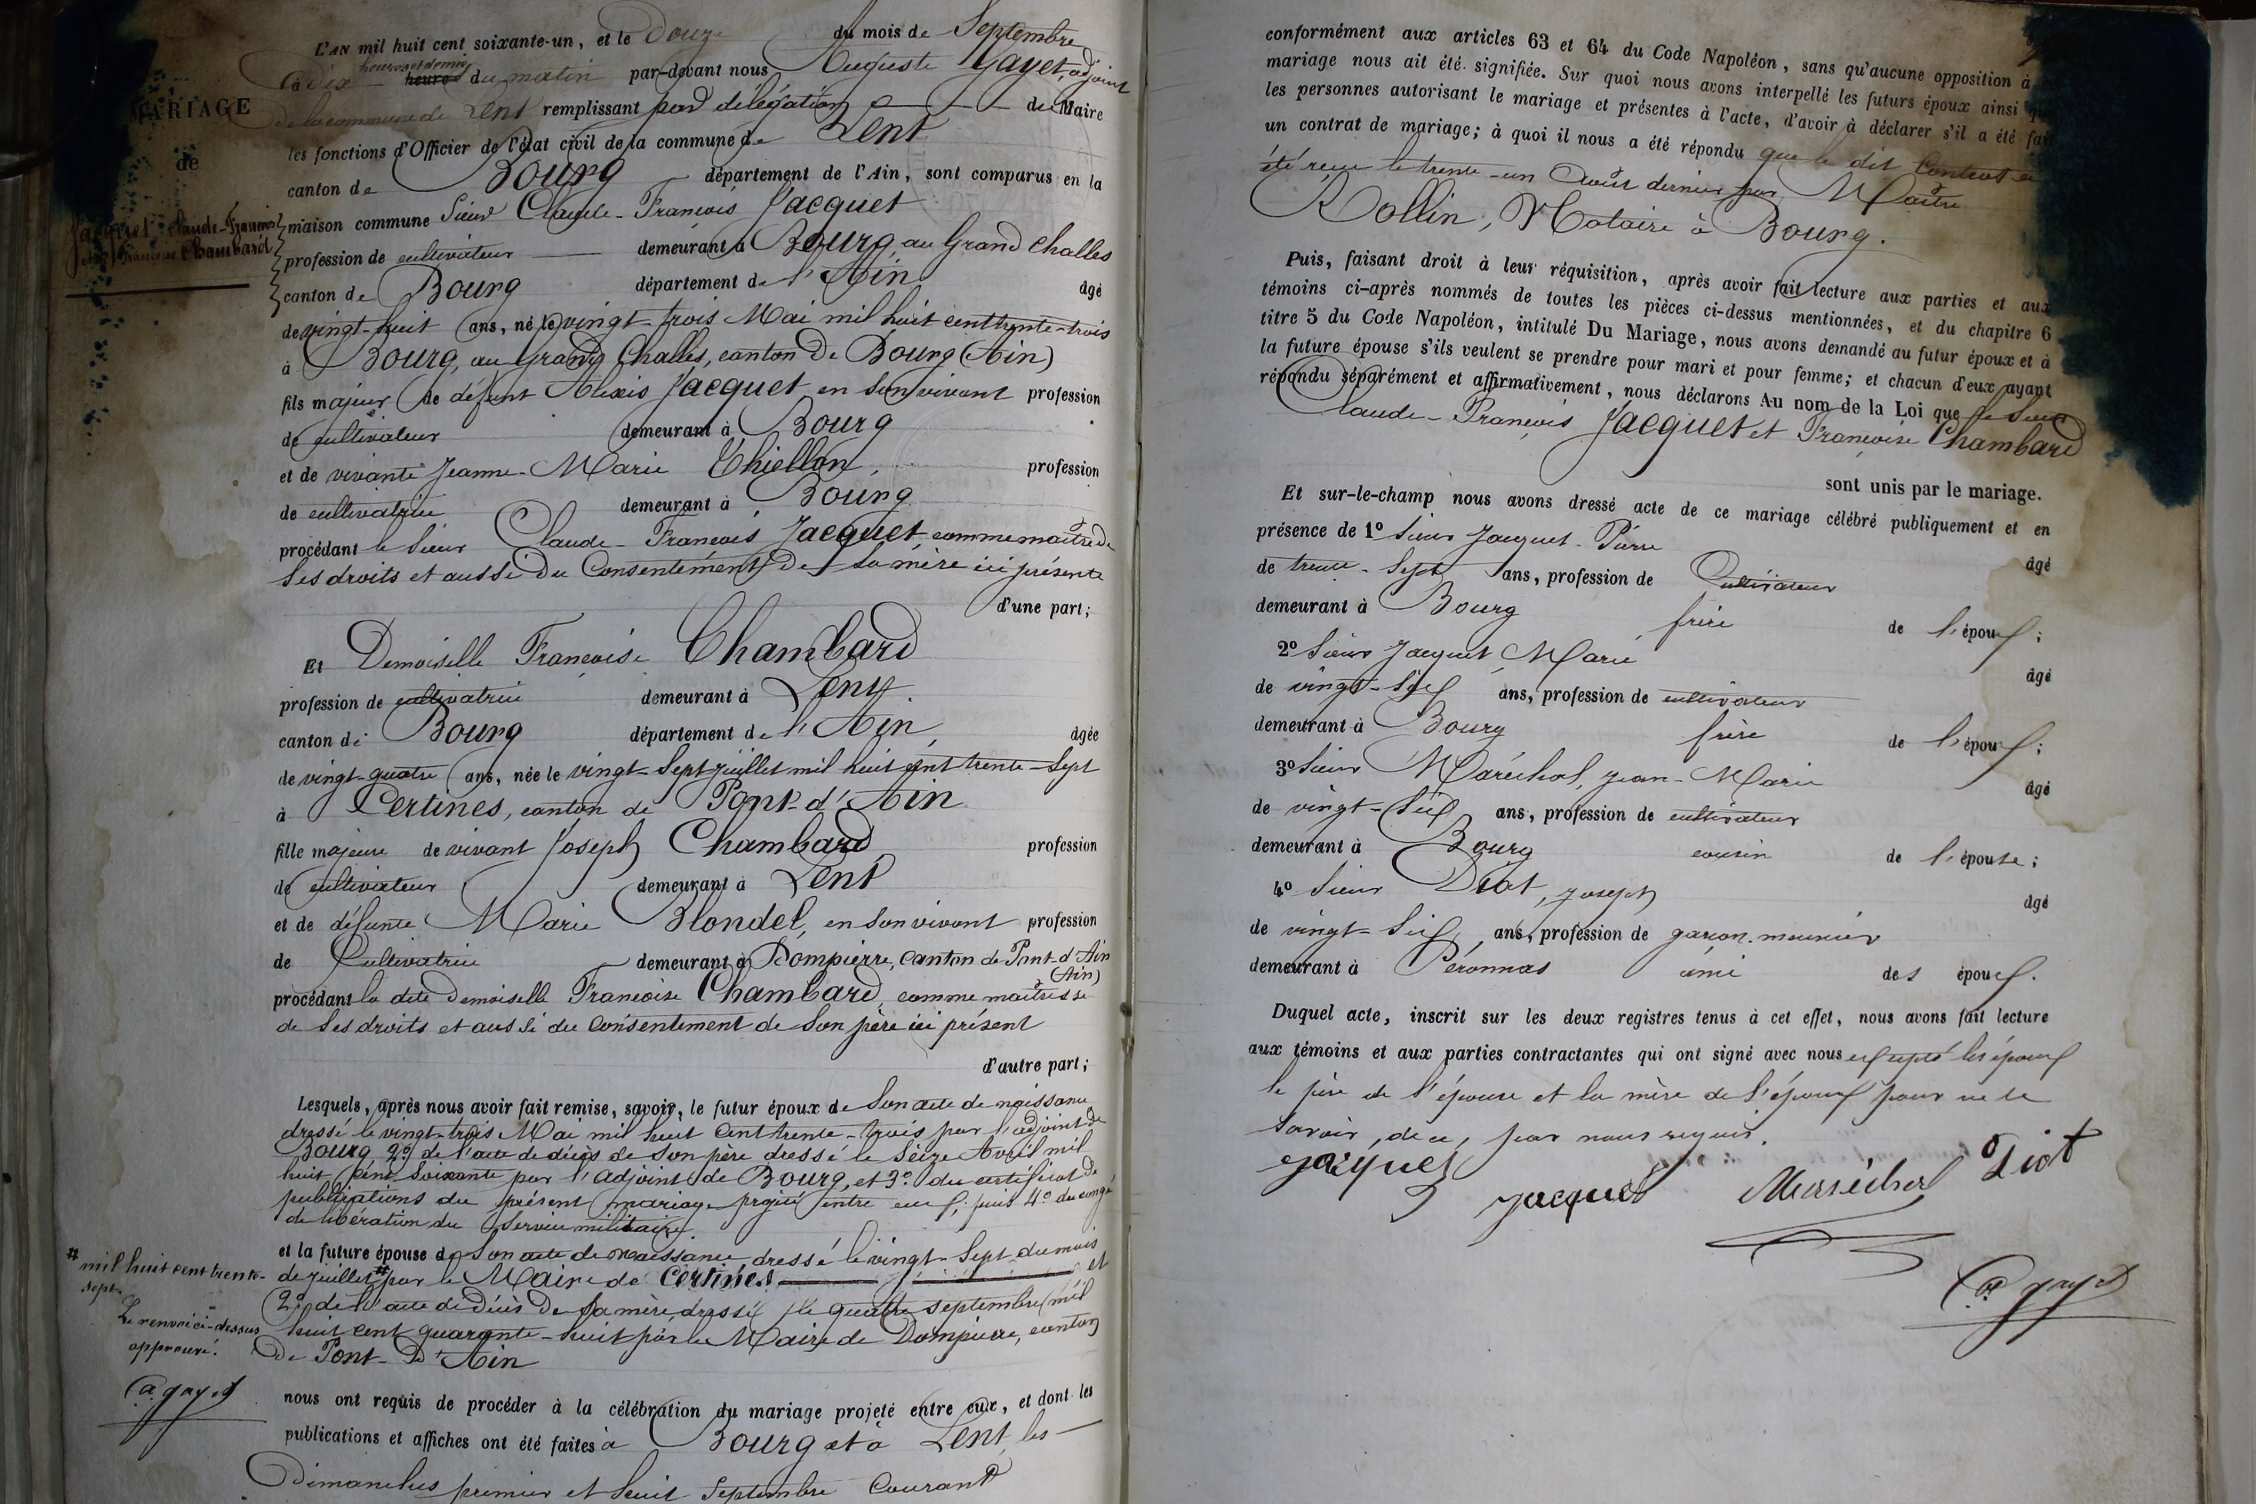 L'AN mil huit cent soixante-un, et le Douze du mois de Septembre
à dix heures et demie heures du matin par-devant nous Auguste Gayet, adjoint
de la commune de Lent remplissant par délégation du Maire
les fonctions d'Officier de l'état civil de la commune de Lent
canton de Bourg département de l'Ain, sont comparus en la
maison commune Sieur Claude-François Jacquet
profession de cultivateur demeurant à Bourg, au Grand Challes
canton de Bourg département de l'Ain âgé
de vingt-huit ans, né le vingt-trois Mai mil huit cent trente-trois
à Bourg, au Grand Challes, canton de Bourg (Ain)
fils majeur de défunt Alexis Jacquet en son vivant profession
de cultivateur demeurant à Bourg
et de vivante Jeanne-Marie Thiellon, profession
de cultivatrice demeurant à Bourg
procédant le Sieur Claude-François Jacquet comme maître de
ses droits et aussi du Consentement de sa mère ici présente
d'une part;
Et Demoiselle Françoise Chambard
profession de cultivatrice demeurant à Lent
canton de Bourg département de l'Ain, âgée
de vingt-quatre ans, née le vingt-sept juillet mil huit cent trente-sept
à Certines, canton de Pont-d'Ain
fille majeure de vivant Joseph Chambard profession
de cultivateur demeurant à Lent
et de défunte Marie Blondel, en son vivant profession
de Cultivatrice demeurant à Dompierre, canton de Pont-d'Ain
(Ain)
procédant la dite Demoiselle Françoise Chambard, comme maîtresse
de ses droits et aussi du consentement de son père ici présent
d'autre part;
Lesquels, après nous avoir fait remise, savoir, le futur époux de son acte de naissance
dressé le vingt-trois Mai mil huit cent trente-trois par l'adjoint de
Bourg 2º de l'acte de décès de son père dressé le seize Avril mil
huit cent soixante par l'adjoint de Bourg, et 3º du certificat de
publications du présent mariage projeté entre eux, puis 4º du congé
de libération du service militaire.
et la future épouse de son acte de naissance, dressé le vingt-sept du mois
de juillet # par le Maire de Certines et
2º de l'acte de décès de sa mère dressé le quatre septembre mil
huit cent quarante-huit par le Maire de Dompierre, canton
de Pont-d'Ain
nous ont requis de procéder à la célébration du mariage projeté entre eux, et dont les
publications et affiches ont été faites à Bourg et à Lent, les
Dimanches premier et huit Septembre Courant
MARIAGE
de
Jacquet Claude-François
et Françoise Chambard
# mil huit cent trente-
sept.
Le renvoi ci-dessus
approuvé.
A. Gayet
conformément aux articles 63 et 64 du Code Napoléon, sans qu'aucune opposition à
mariage nous ait été signifiée. Sur quoi nous avons interpellé les futurs époux ainsi
les personnes autorisant le mariage et présentes à l'acte, d'avoir à déclarer s'il a été fait
un contrat de mariage; à quoi il nous a été répondu que le dit Contrat a
été reçu le trente-un Août dernier par Maître
Rollin, Notaire à Bourg.
Puis, faisant droit à leur réquisition, après avoir fait lecture aux parties et aux
témoins ci-après nommés de toutes les pièces ci-dessus mentionnées, et du chapitre 6
titre 5 du Code Napoléon, intitulé Du Mariage, nous avons demandé au futur époux et à
la future épouse s'ils veulent se prendre pour mari et pour femme; et chacun d'eux ayant
répondu séparément et affirmativement, nous déclarons Au nom de la Loi que le Sieur
Claude-François Jacquet et Françoise Chambard
sont unis par le mariage.
Et sur-le-champ nous avons dressé acte de ce mariage célébré publiquement et en
présence de 1º Sieur Jacquet Pierre
âgé
de trente-sept ans, profession de Cultivateur
demeurant à Bourg frère de l'époux;
2º Sieur Jacquet, Marie
âgé
de vingt-six ans, profession de cultivateur
demeurant à Bourg frère de l'époux;
3º Sieur Maréchal, Jean-Marie
âgé
de vingt-six ans, profession de cultivateur
demeurant à Bourg cousin de l'épouse;
4º Sieur Diot, Joseph
âgé
de vingt-six ans, profession de garçon meunier
demeurant à Péronnas ami des époux.
Duquel acte, inscrit sur les deux registres tenus à cet effet, nous avons fait lecture
aux témoins et aux parties contractantes qui ont signé avec nous excepté les époux
le père de l'épouse et la mère de l'époux pour ne le
savoir, de ce, par nous requis.
Jacquet Jacquet Maréchal Diot
A. Gayet